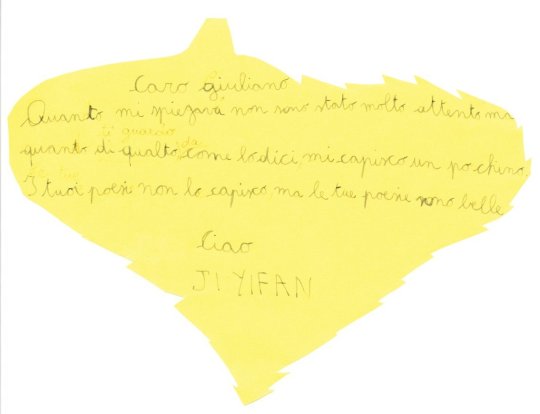 Caro giuliano
Quanto mi spiegavi non sono stato molto attento ma
ti guardo
quanto di qualto, come lo dici, mi capisco un pochino,
I tuoi poesie non lo capisco, ma le tue poesie sono belle
Ciao
JI YIFAN